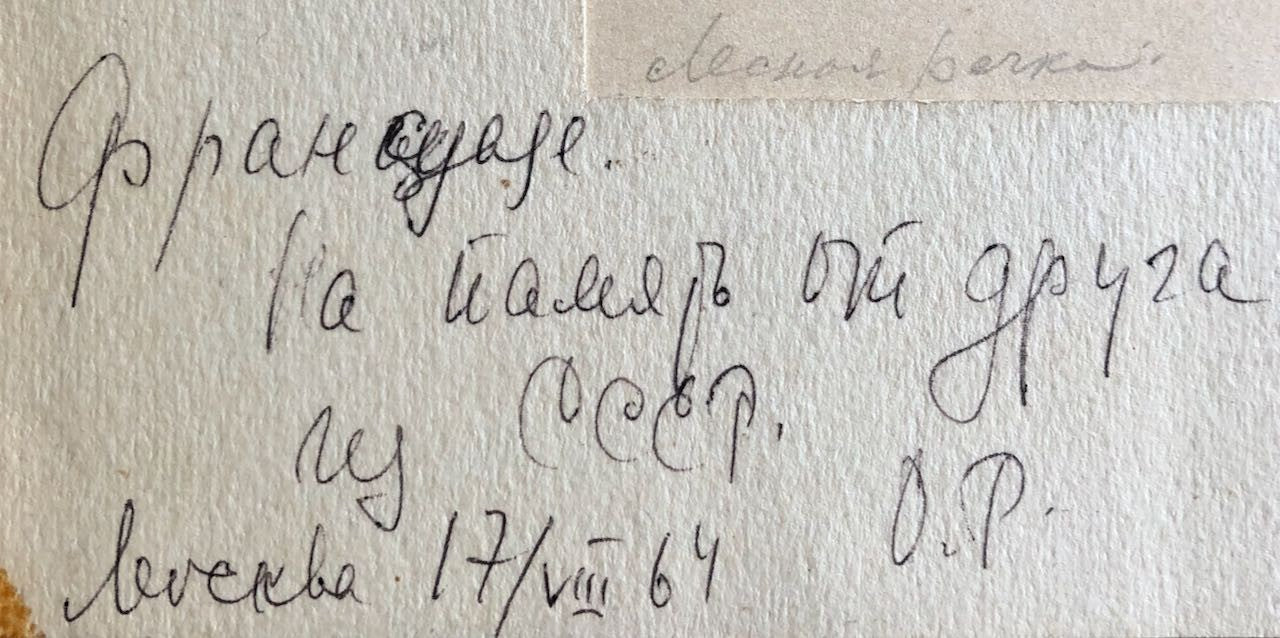 Лесная речка.
Франсуазе.
На память от друга
из СССР.
О.Р.
Москва 17/VIII 64